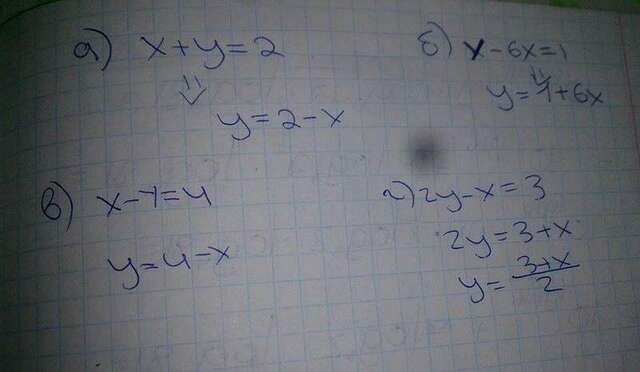 а) x+y=2
⇓
y=2-x
б) x-6x=1
⇓
y=1+6x
в) x-7=4
y=4-x
г) 2y-x=3
2y=3+x
y=\frac{3+x}{2}